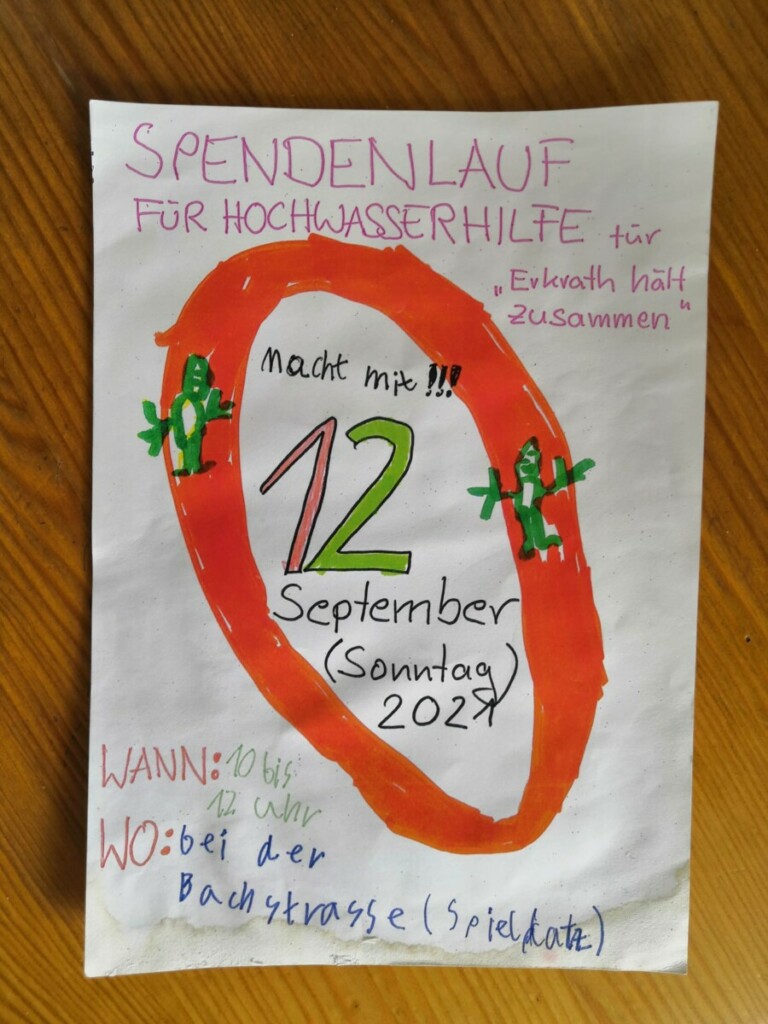 SPENDENLAUF
FÜR HOCHWASSERHILFE für
„Erkrath hält
zusammen"
Macht mit!!!
12
September
(Sonntag)
2021
WANN: 10 bis
12 uhr
WO: bei der
Bachstrasse (Spielplatz)